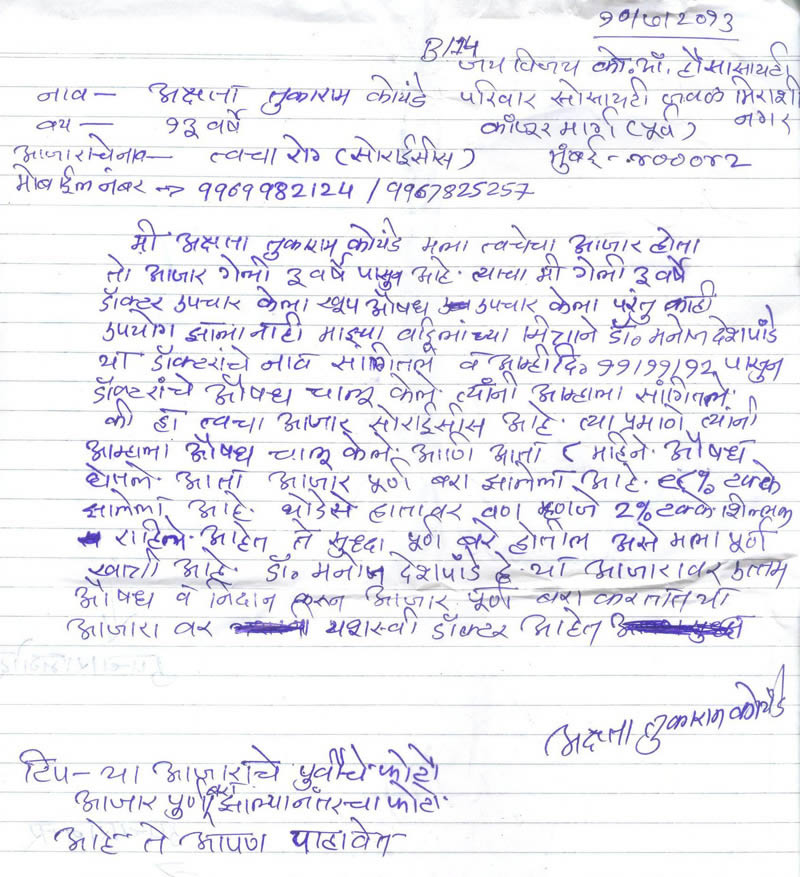 १०/७/२०१३
B/14
जय विजय को.ऑ. हौसासायटी
नाव — अक्षता तुकाराम कोयंडे परिवार सोसायटी जवळ मिराशी
नगर
वय — १३ वर्षे कॉपर मार्ग (पूर्व)
आजाराचे नाव — त्वचा रोग (सोराईसीस) मुंबई - ४०००४२
मोबाईल नंबर → 9969982124 / 9967825257
मी अक्षता तुकाराम कोयंडे मला त्वचेचा आजार होता
तो आजार गेली ३ वर्षे पासुन आहे. त्याचा मी गेली ३ वर्षे
डॉक्टर उपचार केला खूप औषध उपचार केला परंतु काही
उपयोग झाला नाही माझ्या वडिलांच्या मित्राने डॉ. मनोज देशपांडे
या डॉक्टरांचे नाव सांगितले व आम्ही दि. ११/११/१२ पासुन
डॉक्टरांचे औषध चालू केले. त्यांनी आम्हाला सांगितले
की हा त्वचा आजार सोराईसीस आहे. त्या प्रमाणे त्यांनी
आम्हाला औषध चालू केले. आणि आता ८ महिने औषध
घेतले. आता आजार पूर्ण बरा झालेला आहे. ९८% टक्के
झालेला आहे. थोडेसे हातावर वण म्हणजे 2% टक्के शिल्लक
राहिले आहेत ते सुध्दा पूर्ण बरे होतील असे मला पूर्ण
खात्री आहे. डॉ. मनोज देशपांडे हे या आजारावर उत्तम
औषध व निदान करुन आजार पूर्ण बरा करतात या
आजारा वर यशस्वी डॉक्टर आहेत
अक्षता तुकाराम कोयंडे
टिप - या आजाराचे पुर्वीचे फोटो
आजार पुर्ण बरा झाल्यानंतरचा फोटो.
आहे ते आपण पाहावेत